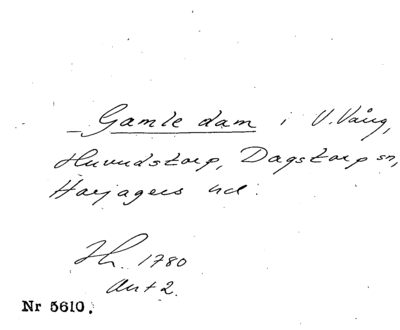 Gamle dam i V. Vång,
Huvudstorp, Dagstorp sn,
Harjagers hd.
Jh. 1780
Akt 2.
Nr 5610.